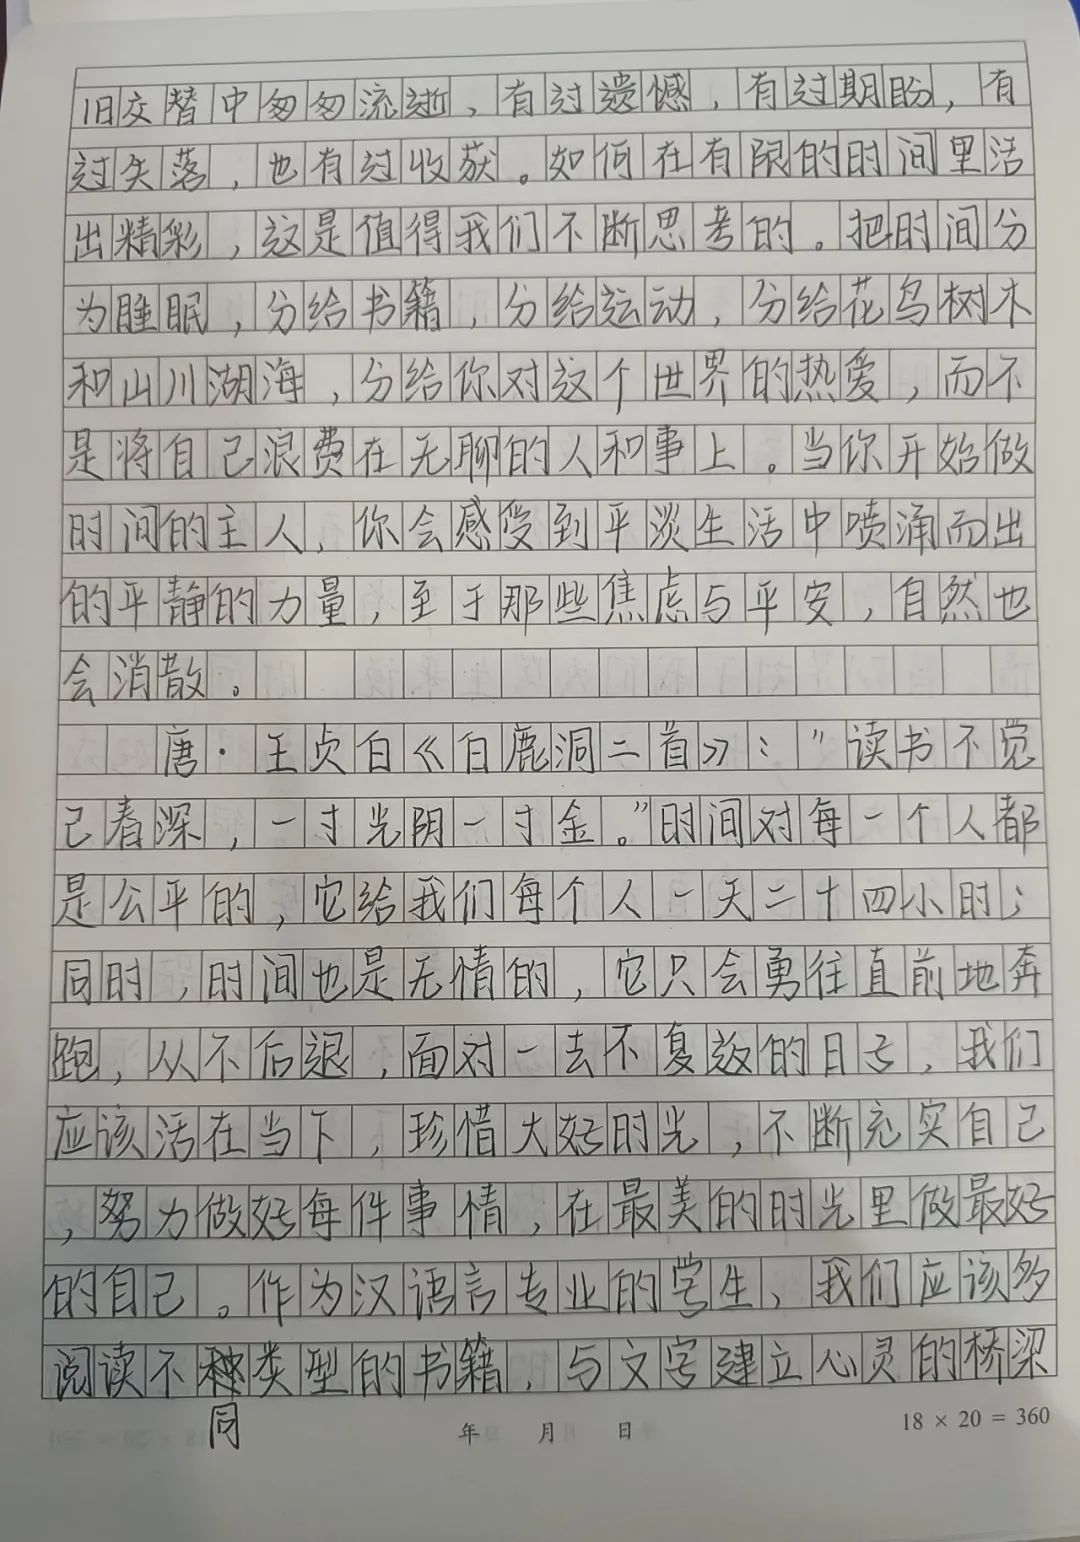 旧交替中匆匆流逝，有过遗憾，有过期盼，有
过失落，也有过收获。如何在有限的时间里活
出精彩，这是值得我们不断思考的。把时间分
为睡眠，分给书籍，分给运动，分给花鸟树木
和山川湖海，分给你对这个世界的热爱，而不
是将自己浪费在无聊的人和事上。当你开始做
时间的主人，你会感受到平淡生活中喷涌而出
的平静的力量，至于那些焦虑与平安，自然也
会消散。
唐·王贞白《白鹿洞二首》："读书不觉
己春深，一寸光阴一寸金。"时间对每一个人都
是公平的，它给我们每个人一天二十四小时；
同时，时间也是无情的，它只会勇往直前地奔
跑，从不后退，面对一去不复返的日子，我们
应该活在当下，珍惜大好时光，不断充实自己
，努力做好每件事情，在最美的时光里做最好
的自己。作为汉语言专业的学生，我们应该多
阅读不同类型的书籍，与文字建立心灵的桥梁
年 月 日 18 × 20 = 360